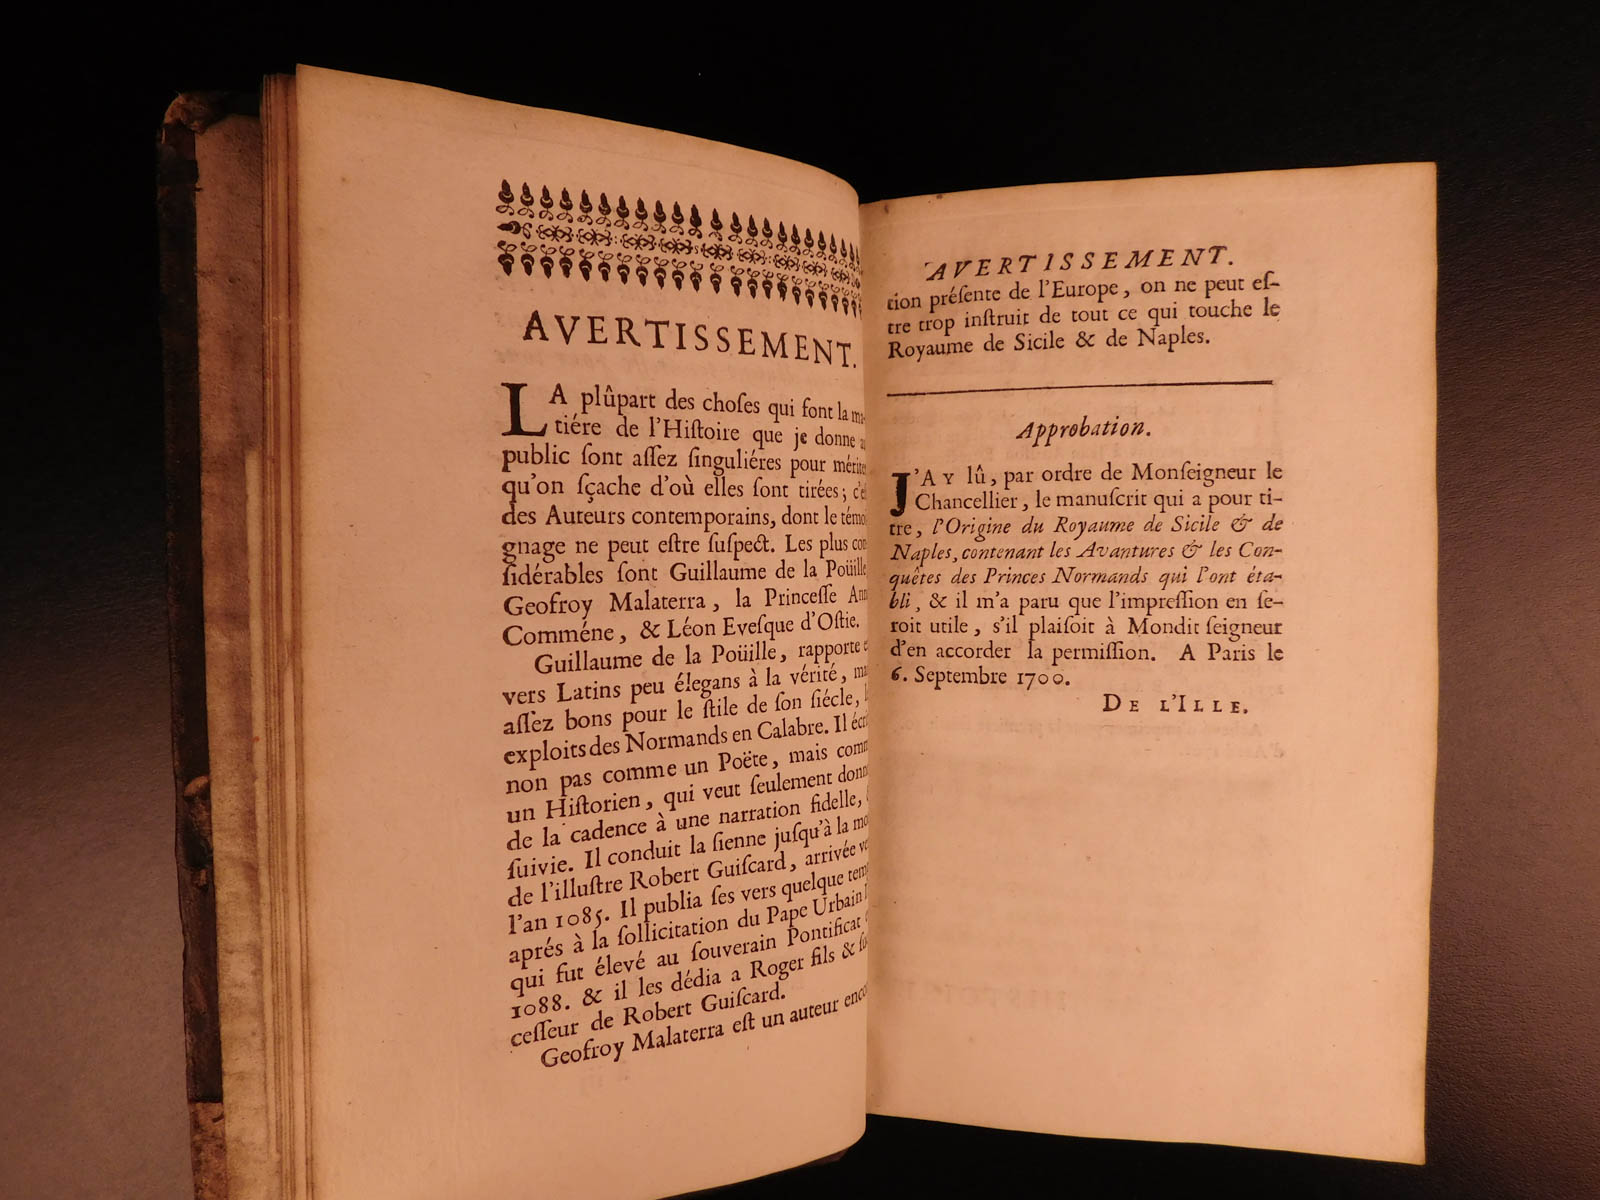 AVERTISSEMENT.
LA plûpart des choſes qui font la ma-
tiére de l'Hiſtoire que je donne au
public ſont aſſez ſinguliéres pour mériter
qu'on ſçache d'où elles ſont tirées; c'eſt
des Auteurs contemporains, dont le témoi
gnage ne peut eſtre ſuſpect. Les plus con
ſidérables ſont Guillaume de la Poüille
Geofroy Malaterra, la Princeſſe Ann
Comméne, & Léon Eveſque d'Oſtie.
Guillaume de la Poüille, rapporte e
vers Latins peu élegans à la vérité, ma
aſſez bons pour le ſtile de ſon ſiécle, l
exploits des Normands en Calabre. Il écri
non pas comme un Poëte, mais comm
un Hiſtorien, qui veut ſeulement donn
de la cadence à une narration fidelle,
ſuivie. Il conduit la ſienne juſqu'à la mo
de l'illuſtre Robert Guiſcard, arrivée ve
l'an 1085. Il publia ſes vers quelque temp
aprés à la ſollicitation du Pape Urbain I
qui fut élevé au ſouverain Pontificat
1088. & il les dédia a Roger fils & ſuc
ceſſeur de Robert Guiſcard.
Geofroy Malaterra eſt un auteur enco
AVERTISSEMENT.
tion préſente de l'Europe, on ne peut eſ-
tre trop inſtruit de tout ce qui touche le
Royaume de Sicile & de Naples.
Approbation.
J'AY lû, par ordre de Monſeigneur le
Chancellier, le manuſcrit qui a pour ti-
tre, l'Origine du Royaume de Sicile & de
Naples, contenant les Avantures & les Con-
quêtes des Princes Normands qui l'ont éta-
bli, & il m'a paru que l'impreſſion en ſe-
roit utile, s'il plaiſoit à Mondit ſeigneur
d'en accorder la permiſſion. A Paris le
6. Septembre 1700.
DE L'ILLE.